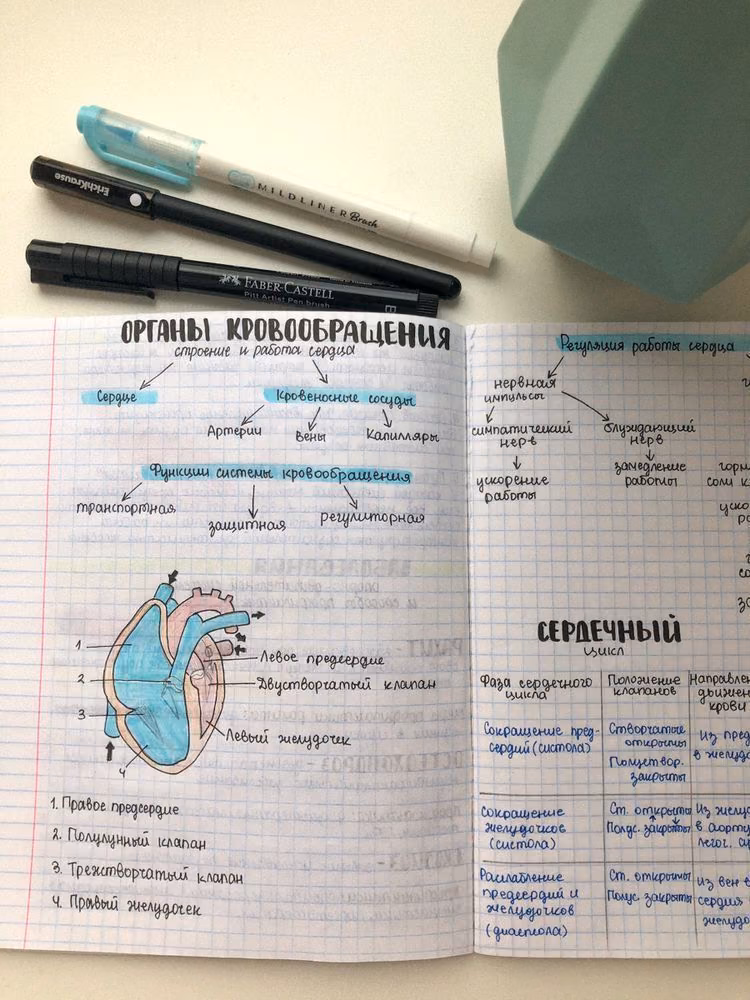 MILDLINER Brush
ErichKrause
FABER-CASTELL
Pitt Artist Pen brush
B
ОРГАНЫ КРОВООБРАЩЕНИЯ
строение и работа сердца
Сердце
Кровеносные сосуды
Артерии
Вены
Капилляры
Функции системы кровообращения
транспортная
защитная
регулиторная
1
2
3
4
Левое предсердие
Двустворчатый клапан
Левый желудочек
1. Правое предсердие
2. Полулунный клапан
3. Трехстворчатый клапан
4. Правый желудочек
Регуляция работы сердца
нервная
импульсы
симпатический
нерв
блуждающий
нерв
ускорение
работы
замедление
работы
горм
соли к
уско
ра
со
за
СЕРДЕЧНЫЙ
ЦИКЛ
Фаза сердечного
цикла
Положение
клапанов
Направлен
движен
крови
Сокращение пред-
сердий (систола)
Створчатые
открыты
Полуствор.
закрыты
Из пред
в желудо
Сокращение
желудочков
(систола)
Ст. открыты
Полус. закрыты
Из желуд
в аорту
легог. с
Раслабление
предсердий и
желудочков
(диастола)
Ст. открыты
Полус. закрыты
Из вен в
сердия
желудо